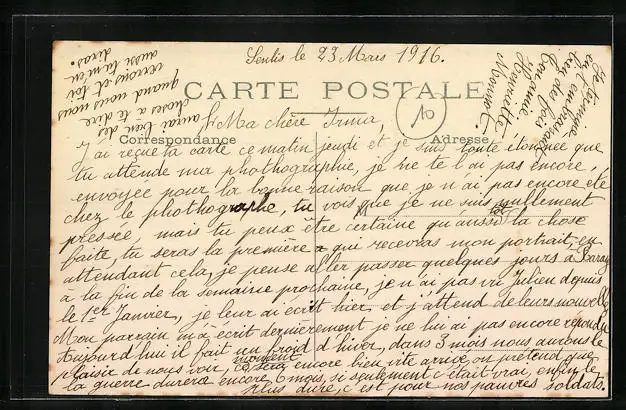 Senlis le 23 Mars 1916.
CARTE POSTALE
Correspondance
Adresse
10
Ma chère Irma,
J'ai reçue ta carte ce matin jeudi et je suis toute étonnée que
tu attende ma phothographie, je ne te l'ai pas encore
envoyée pour la bonne raison que je n'ai pas encore été
chez le phothographe, tu vois que je ne suis nullement
pressée, mais tu peux être certaine qu'aussitôt la chose
faite, tu seras la première a qui recevras mon portrait, en
attendant cela, je pense aller passer quelques jours à
a la fin de la semaine prochaine, je n'ai pas vu Julien depuis
le 1er Janvier, je leur ai écrit hier et j'attend de leurs nouvelles
Mon parrain m'a écrit dernièrement je ne lui ai pas encore répondu
Aujourd'hui il fait un froid d'hiver, dans 3 mois nous aurons le
plaisir de nous voir, ce moment sera encore bien vite arrivé, on prétend que
la guerre durera encore 6 mois, si seulement c'était vrai, enfin le
plus dure, c'est pour nos pauvres soldats.
J'aurai bien des
choses à te dire
quand nous nous
verrons et toi
aussi tu m'en
diras.
je t'embrasse
bien des fois
Ton amie
Henriette